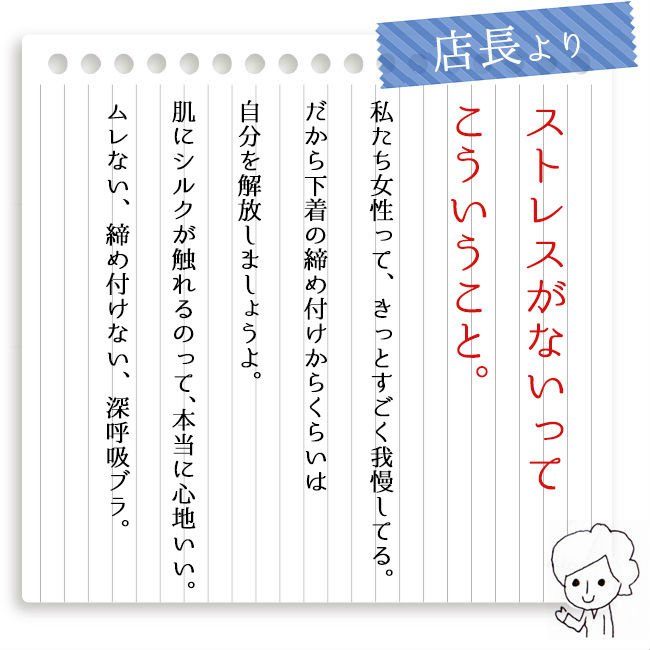 店長より
ストレスがないって
こういうこと。
私たち女性って、きっとすごく我慢してる。
だから下着の締め付けからくらいは
自分を解放しましょうよ。
肌にシルクが触れるのって、本当に心地いい。
ムレない、締め付けない、深呼吸ブラ。